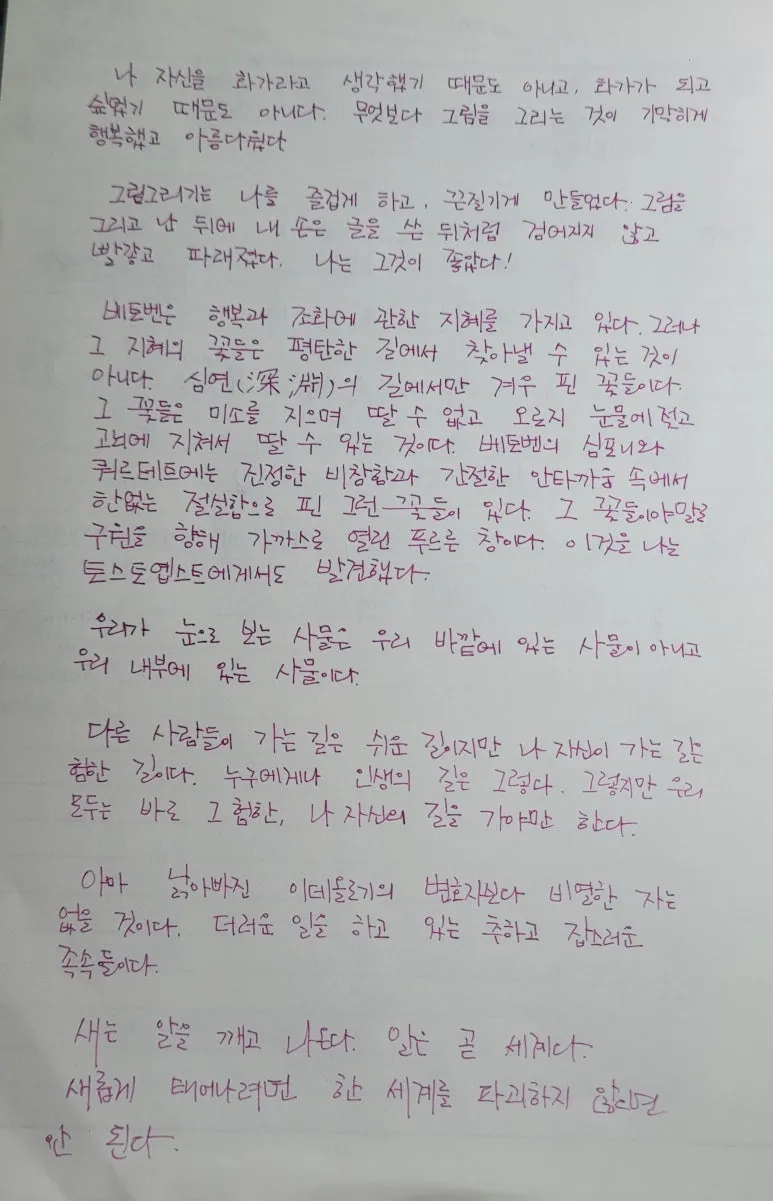 나 자신을 화가라고 생각했기 때문도 아니고, 화가가 되고
싶었기 때문도 아니다. 무엇보다 그림을 그리는 것이 기막히게
행복했고 아름다웠다
그림그리기는 나를 즐겁게 하고, 끈질기게 만들었다. 그림을
그리고 난 뒤에 내 손은 글을 쓴 뒤처럼 검어지지 않고
빨갛고 파래졌다. 나는 그것이 좋았다!
베토벤은 행복과 조화에 관한 지혜를 가지고 있다. 그러나
그 지혜의 꽃들은 평탄한 길에서 찾아낼 수 있는 것이
아니다. 심연(深淵)의 길에서만 겨우 핀 꽃들이다.
그 꽃들은 미소를 지으며 딸 수 없고 오로지 눈물에 젖고
고뇌에 지쳐서 딸 수 있는 것이다. 베토벤의 심포니와
쿼르테트에는 진정한 비창함과 간절한 안타까움 속에서
한없는 절실함으로 핀 그런 꽃들이 있다. 그 꽃들이야말로
구원을 향해 가까스로 열린 푸르른 창이다. 이것을 나는
토스토옙스트에게서도 발견했다.
우리가 눈으로 보는 사물은 우리 바깥에 있는 사물이 아니고
우리 내부에 있는 사물이다.
다른 사람들이 가는 길은 쉬운 길이지만 나 자신이 가는 길은
험한 길이다. 누구에게나 인생의 길은 그렇다. 그렇지만 우리
모두는 바로 그 험한, 나 자신의 길을 가야만 한다.
아마 낡아빠진 이데올르기의 변호자보다 비열한 자는
없을 것이다. 더러운 일을 하고 있는 추하고 잡스러운
족속들이다.
새는 알을 깨고 나온다. 알은 곧 세계다.
새롭게 태어나려면 한 세계를 파괴하지 않으면
안 된다.